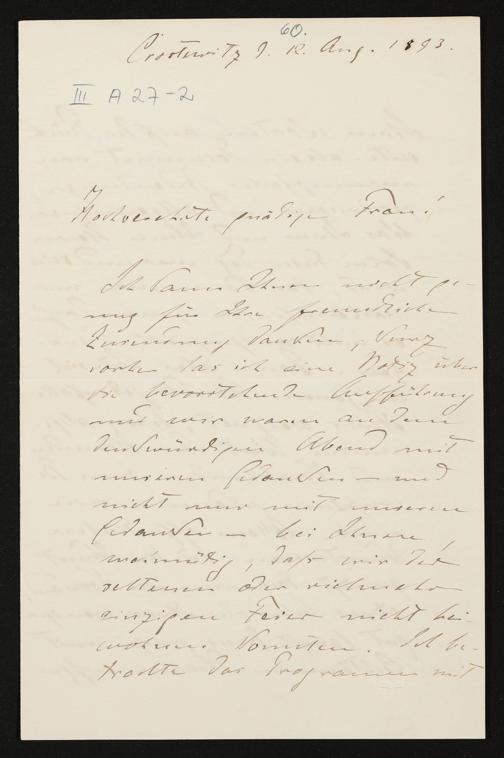 60.
Crostewitz d. 12. Aug. 1893.
III A 27-2
Hochverehrte gnädige Frau!
Ich kann Ihnen nicht ge-
nug für Ihre freundliche
Zusendung danken, kurz
vorher las ich eine Notiz über
die bevorstehende Aufführung
und wir waren an dem
denkwürdigen Abend mit
unseren Gedanken – und
nicht nur mit unseren
Gedanken – bei Ihnen,
wehmütig, daß wir der
seltenen oder vielmehr
einzigen Feier nicht bei-
wohnen konnten. Ich be-
trachte das Programm mit